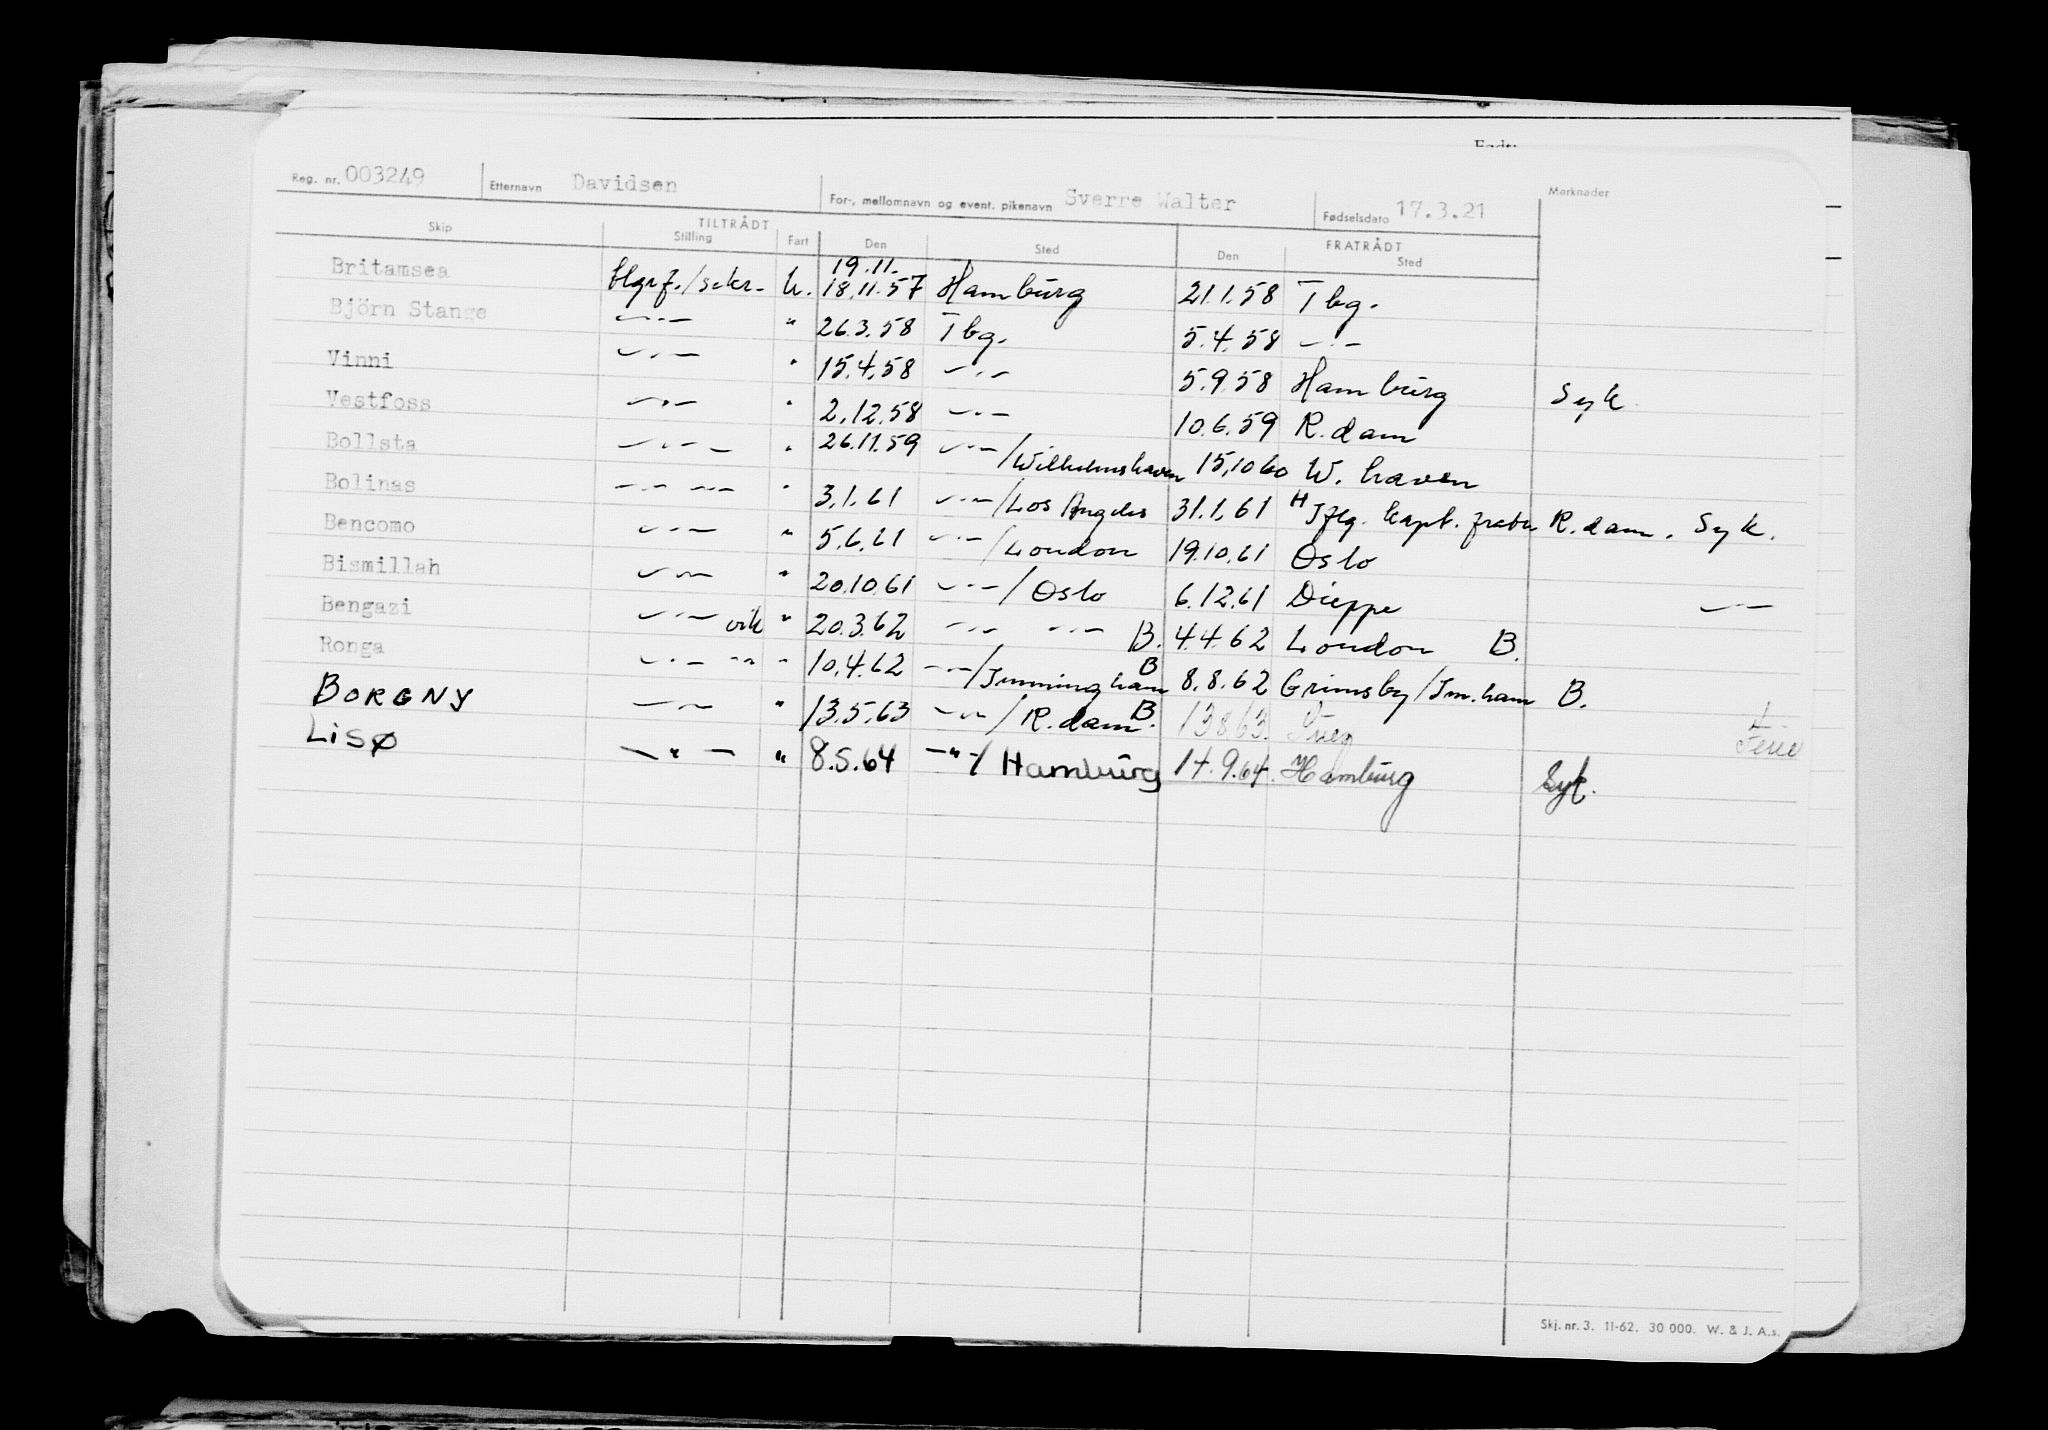 Reg. nr. 003249 Etternavn Davidsen For-, mellomnavn og event. pikenavn Sverre Walter Fødselsdato 17.3.21 Merknader
TILTRÅDT FRATRÅDT
Skip Stilling Fart Den Sted Den Sted
19.11.
Britamsea tlgrf./sekr. U. 18.11.57 Hamburg 21.1.58 Tbg.
Björn Stange —"— " 26.3.58 Tbg. 5.4.58 —"—
Vinni —"— " 15.4.58 —"— 5.9.58 Hamburg Syk
Vestfoss —"— " 2.12.58 —"— 10.6.59 R.dam
Bollsta —"— — " 26.11.59 —"—/Wilhelmshaven 15.10.60 W. haven
Bolinas —"— —"— " 3.1.61 —"—/Los Angeles 31.1.61 kapt. R.dam. Syk.
Bencomo —"— " 5.6.61 —"—/London 19.10.61 Oslo
Bismillah —"— " 20.10.61 —"—/Oslo 6.12.61 Dieppe —"—
Bengazi —"— vik " 20.3.62 —"— —"— B. 4.4.62 London B.
Ronga —"— "" " 10.4.62 —"—/Immingham B 8.8.62 Grimsby/Im.ham B.
BORGNY —"— " 13.5.63 —"—/R.dam B. 13.8.63. Ferie
LISØ —"— " 8.5.64 —"—/Hamburg 14.9.64. Hamburg Syk.
Skj. nr. 3. 11-62. 30 000. W. & J. A.s.